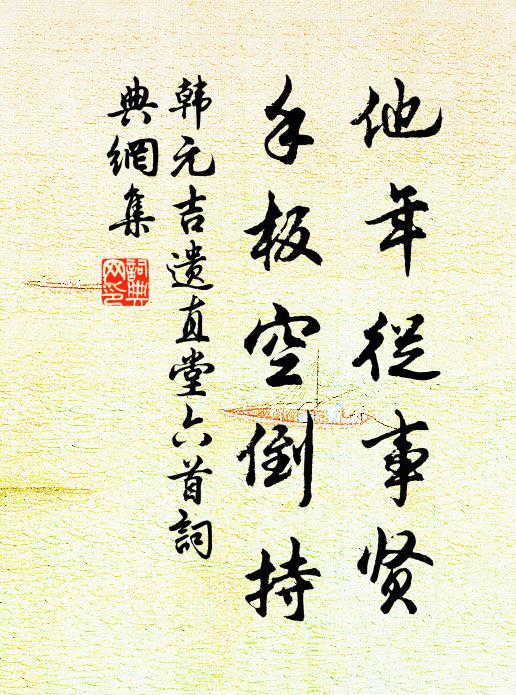 他年從事贤
手板空倒持
韩元吉遗直堂六首詞
典網集
詞典网印